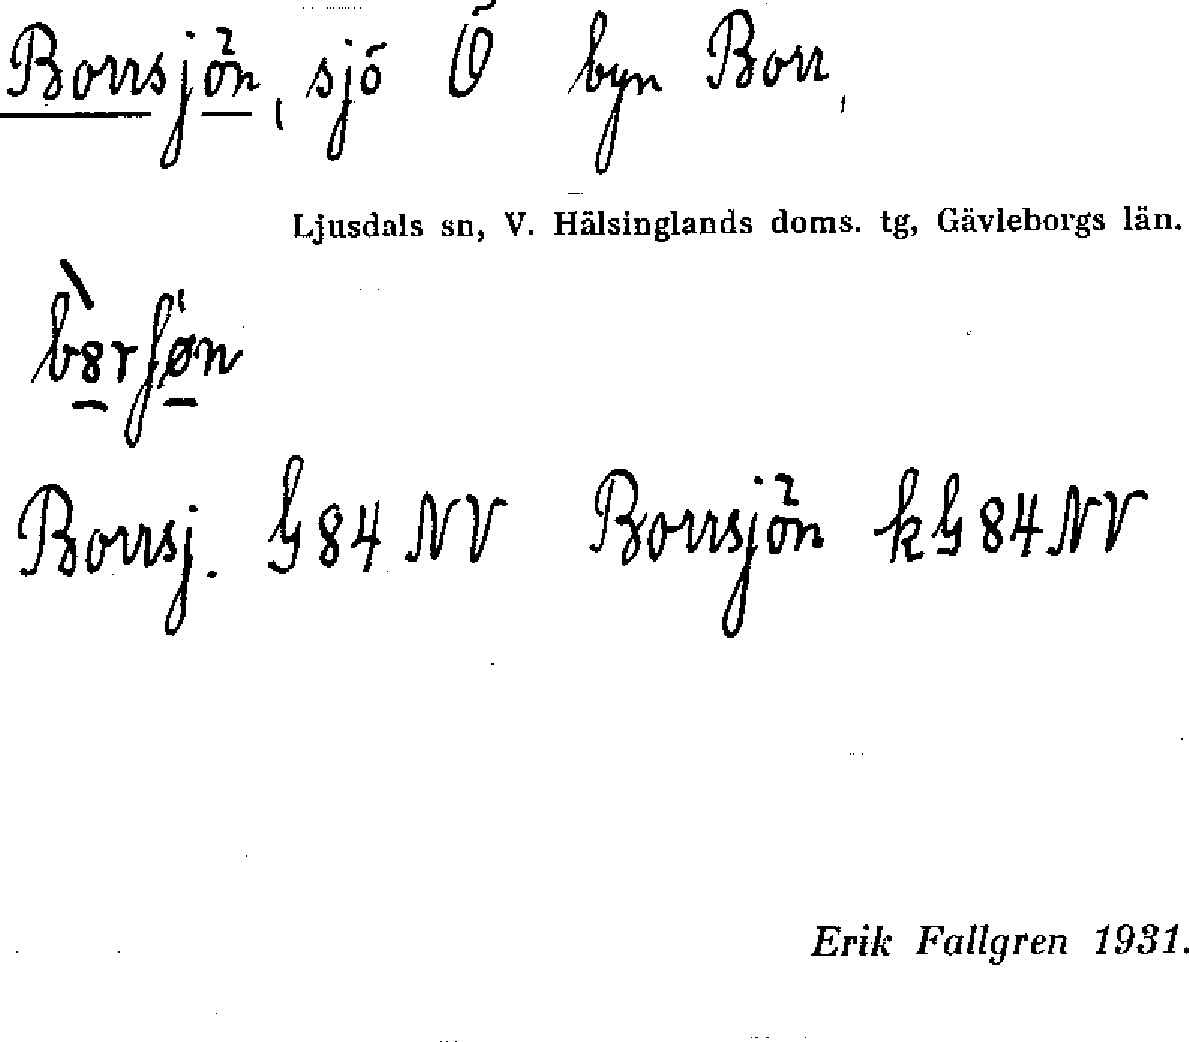 Borrsjön, sjö Ö byn Borr,
Ljusdals sn, V. Hälsinglands doms. tg, Gävleborgs län.
Borrsj. G84 NV Borrsjön kG84NV
Erik Fallgren 1931.